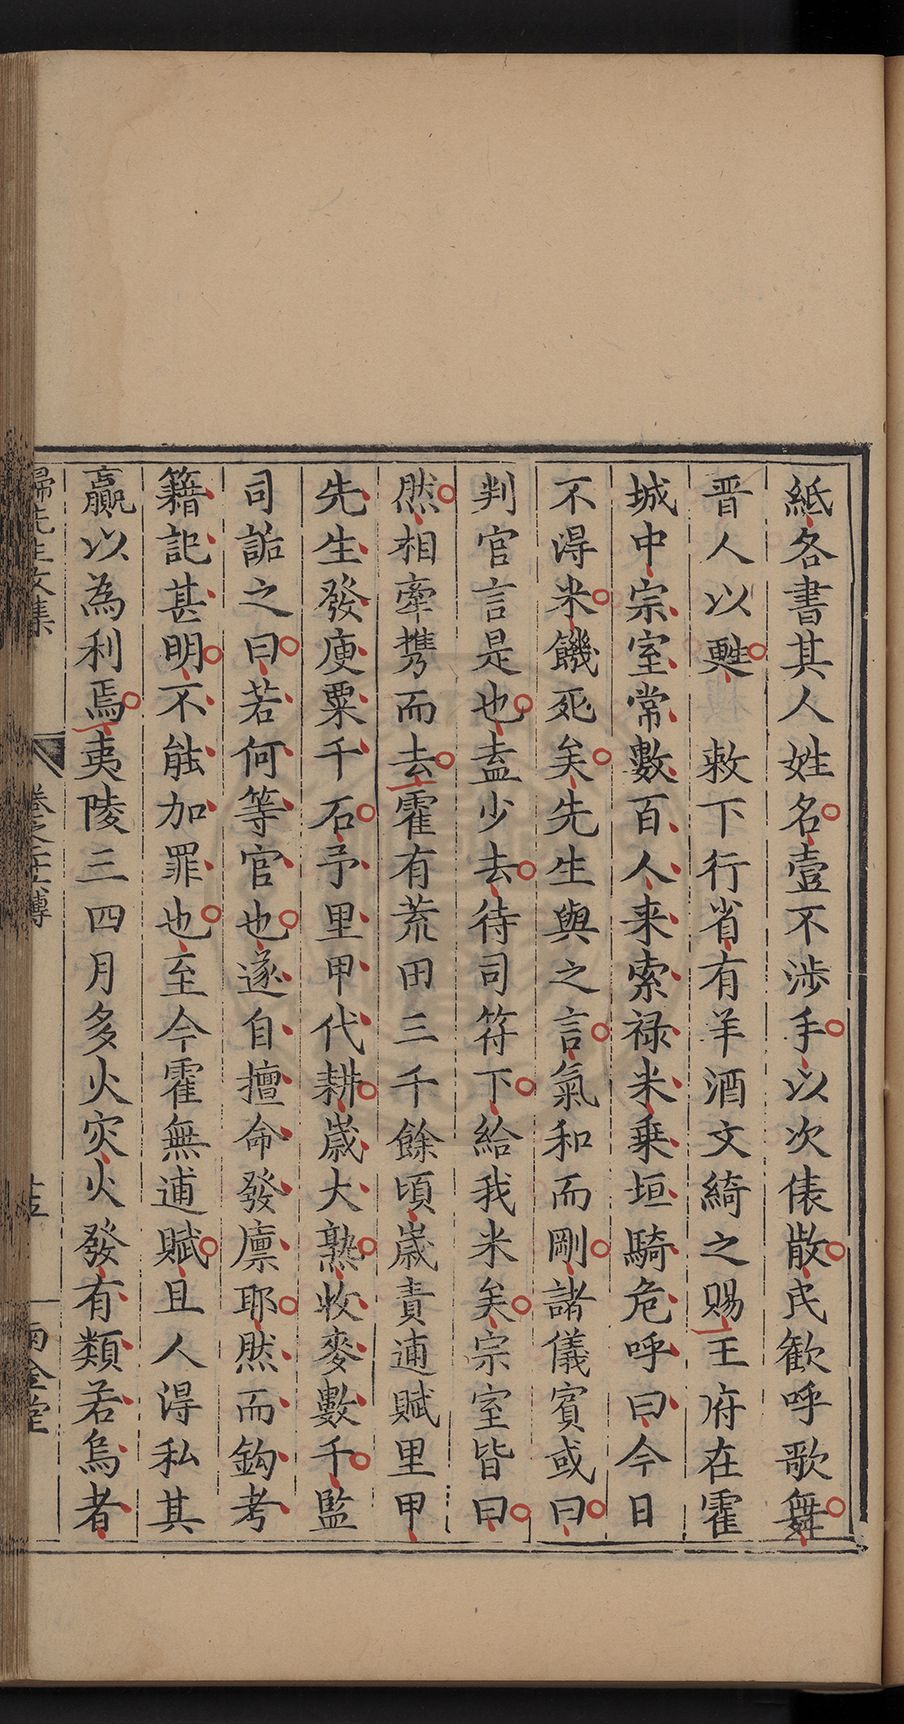 紙各書其人姓名壹不涉手以次俵散民歡呼歌舞
晋人以甦　敕下行省有羊酒文綺之賜王府在霍
城中宗室常數百人来索禄米乗垣騎危呼曰今日
不得米饑死矣先生與之言氣和而剛諸儀賓或曰
判官言是也盍少去待司符下給我米矣宗室皆曰
然相牽攜而去霍有荒田三千餘頃歲責逋賦里甲
先生發庾粟千石予里甲代耕歲大熟收麥數千監
司詬之曰若何等官也遂自擅命發廪耶然而鈎考
籍記甚明不能加罪也至今霍無逋賦且人得私其
贏以為利焉夷陵三四月多火灾火發有類若烏者
歸先生文集
卷之